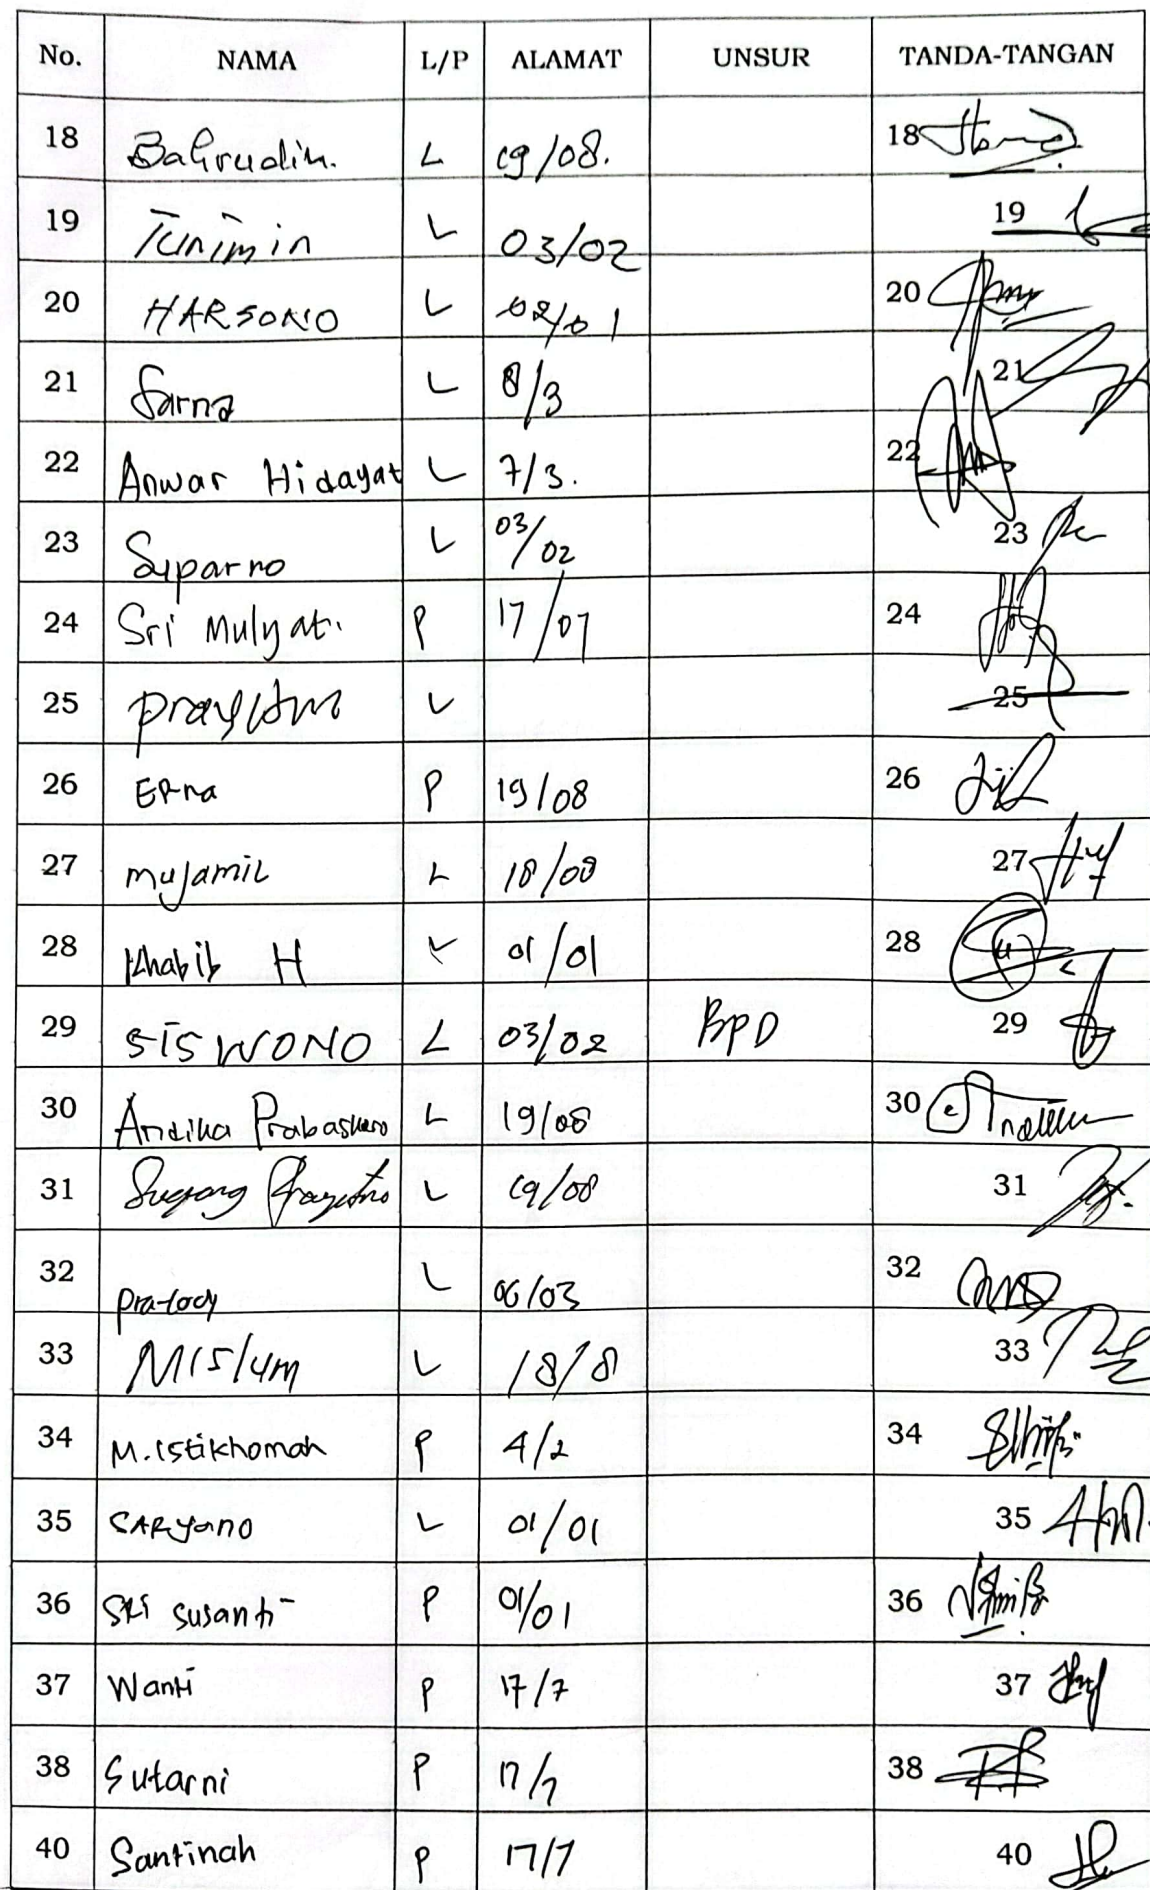 No. NAMA L/P ALAMAT UNSUR TANDA-TANGAN
18 Bahrudin. L 19/08. 18
19 Tunimin L 03/02 19
20 HARSONO L 02/01 20
21 Sarna L 8/3 21
22 Anwar Hidayat L 7/3. 22
23 Suparno L 03/02 23
24 Sri Mulyati P 17/07 24
25 Prayitno L 25
26 Erna P 19/08 26
27 mujamil L 18/08 27
28 Khabib H L 01/01 28
29 SISWONO L 03/02 BPD 29
30 Andika Prabaskoro L 19/08 30
31 Sugeng Prayitno L 19/08 31
32 L 06/03 32
33 MISlum L 18/8 33
34 M.Istikhomah P 4/2 34
35 SARyono L 01/01 35
36 SRi susanti P 01/01 36
37 Wanti P 17/7 37
38 Sutarni P 17/7 38
40 Santinah P 17/7 40